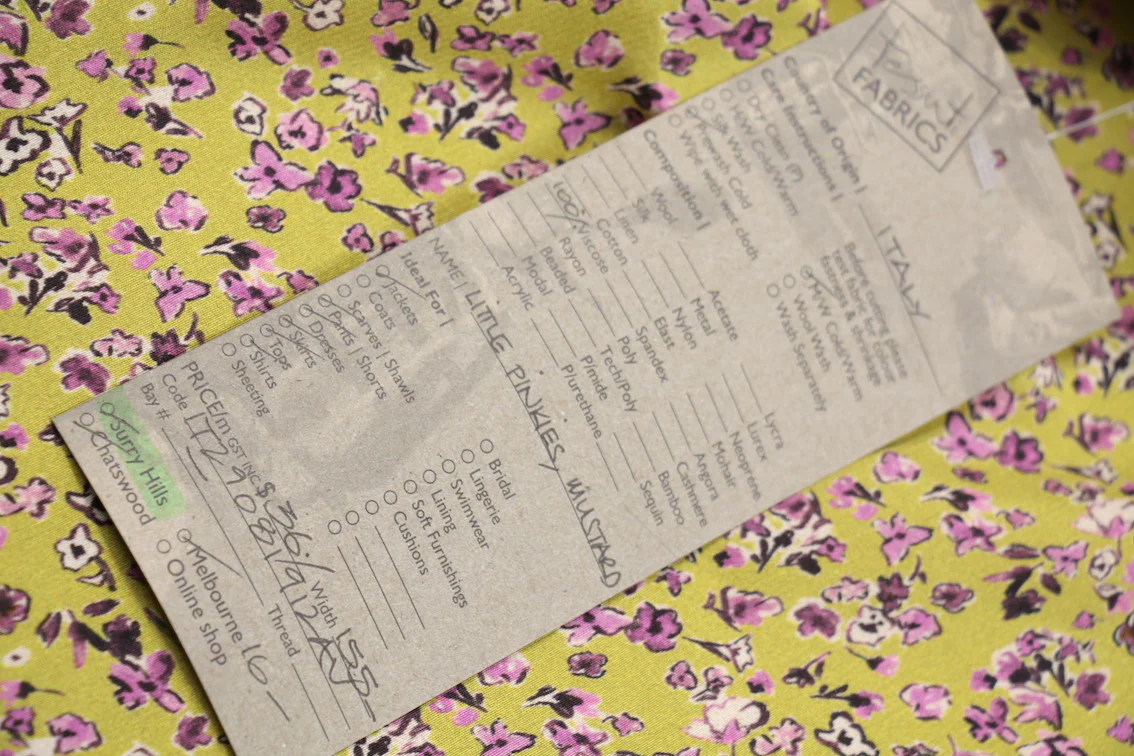 Tessuti
FABRICS
Country of Origin | ITALY
Care Instructions |
Before cutting please
test fabrics for colour
fastness & shrinkage
Dry Clean (P)
HW Cold/Warm
Silk Wash
Prewash Cold
Wipe with wet cloth
M/W Cold/Warm
Wool Wash
Wash Separately
Composition |
Wool
Silk
Linen
Cotton
100% Viscose
Rayon
Beaded
Modal
Acrylic
Acetate
Metal
Nylon
Elast
Spandex
Poly
Tech/Poly
P/mide
P/urethane
Lycra
Lurex
Neoprene
Mohair
Angora
Cashmere
Bamboo
Sequin
NAME | LITTLE PINKIES, MUSTARD
Ideal For |
Jackets
Coats
Scarves | Shawls
Dresses
Pants | Shorts
Skirts
Tops
Shirts
Sheeting
Bridal
Lingerie
Swimwear
Lining
Soft Furnishings
Cushions
PRICE/m GST INC $ 36/ Width 155
Code
Bay # Thread
Surry Hills
Chatswood
Melbourne 16-
Online shop